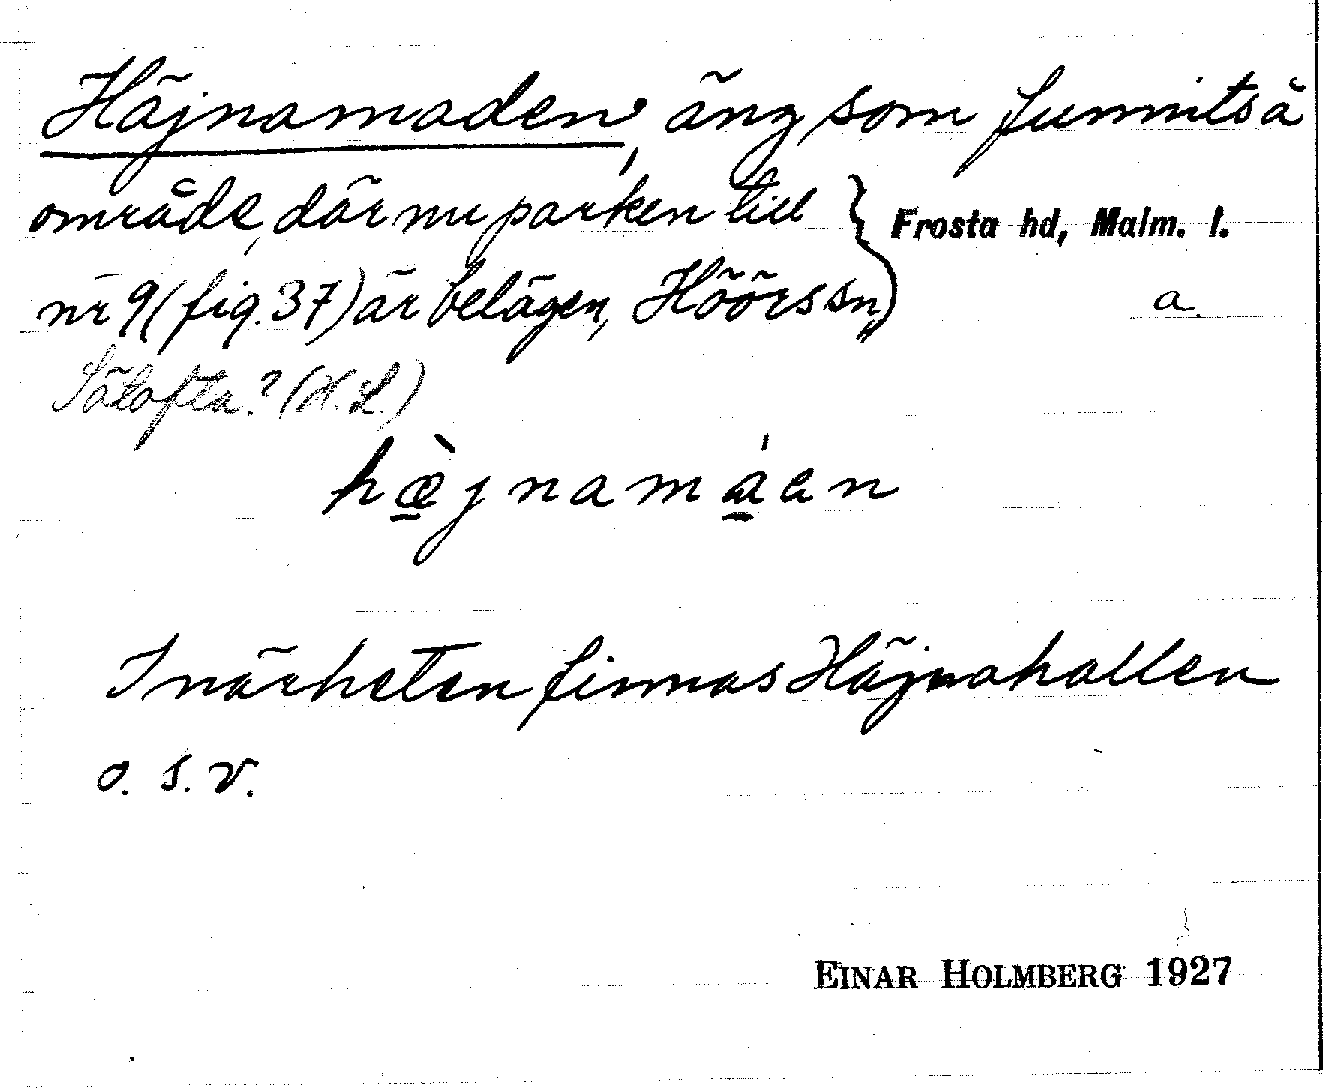 Häjnamaden, äng som funnits å
område, där nu parken till
nr 9 (fig. 37) är belägen, Höörs sn,
Frosta hd, Malm. l.
a.
Sätofta? (H.L.)
hæ̀jnamáen
I närheten finnas Häjnahallen
o. s. v.
EINAR HOLMBERG 1927